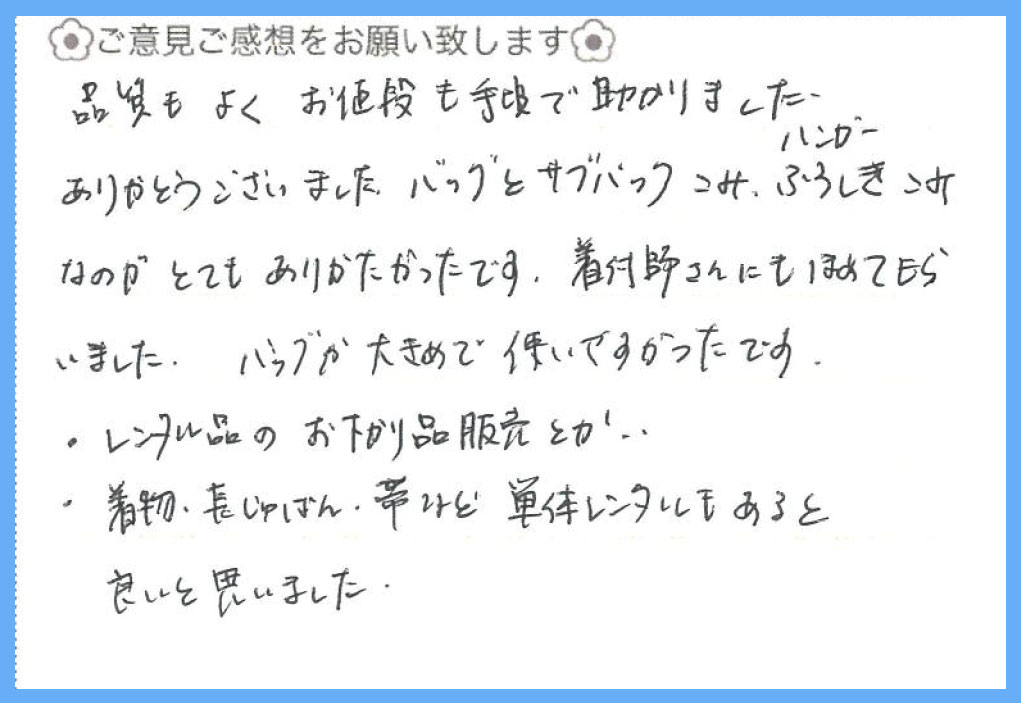 ご意見ご感想をお願い致します
品質も よく お値段も手頃で助かりました。
ハンガー
ありがとうございました。バッグとサブバック込み、ふろしき込み
なのが とても ありがたかったです。着付師さんにも ほめてもら
いました。 バッグが 大きめで 使いやすかったです。
・レンタル品の お下がり品販売とか‥
・着物、長じゅばん、帯など 単体レンタルもあると
良いと思いました。